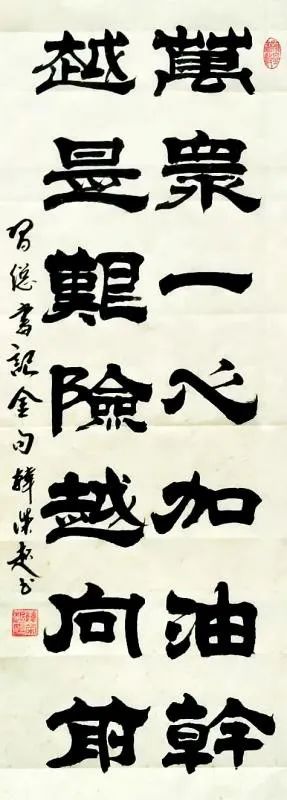 萬眾一心加油幹
越是艱險越向前
習總書記金句韓洪趁书